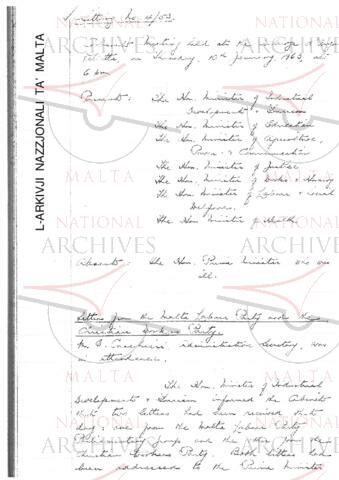 Sitting No. 4/63.
Cabinet Meeting held at the
on Thursday, 10th January, 1963, at
6 p.m.
Present: The Hon. Minister of Industrial
Development & Tourism
The Hon. Minister of Education
The Hon. Minister of Agriculture,
Power & Communication
The Hon. Minister of Justice
The Hon. Minister of Works & Housing
The Hon. Minister of Labour & Social
Welfare.
The Hon. Minister of Health
Absent: The Hon. Prime Minister who was
ill.
Letters from the Malta Labour Party and the
Christian Workers Party.
Mr. administrative secretary, was
in attendance.
The Hon. Minister of Industrial
Development & Tourism informed the Cabinet
that two letters had been received that
day, one from the Malta Labour Party
Parliamentary group and the other from the
Christian Workers Party. Both letters had
been addressed to the Prime Minister
L-ARKIVJI NAZZJONALI TA' MALTA
NATIONAL
ARCHIVES
MALTA